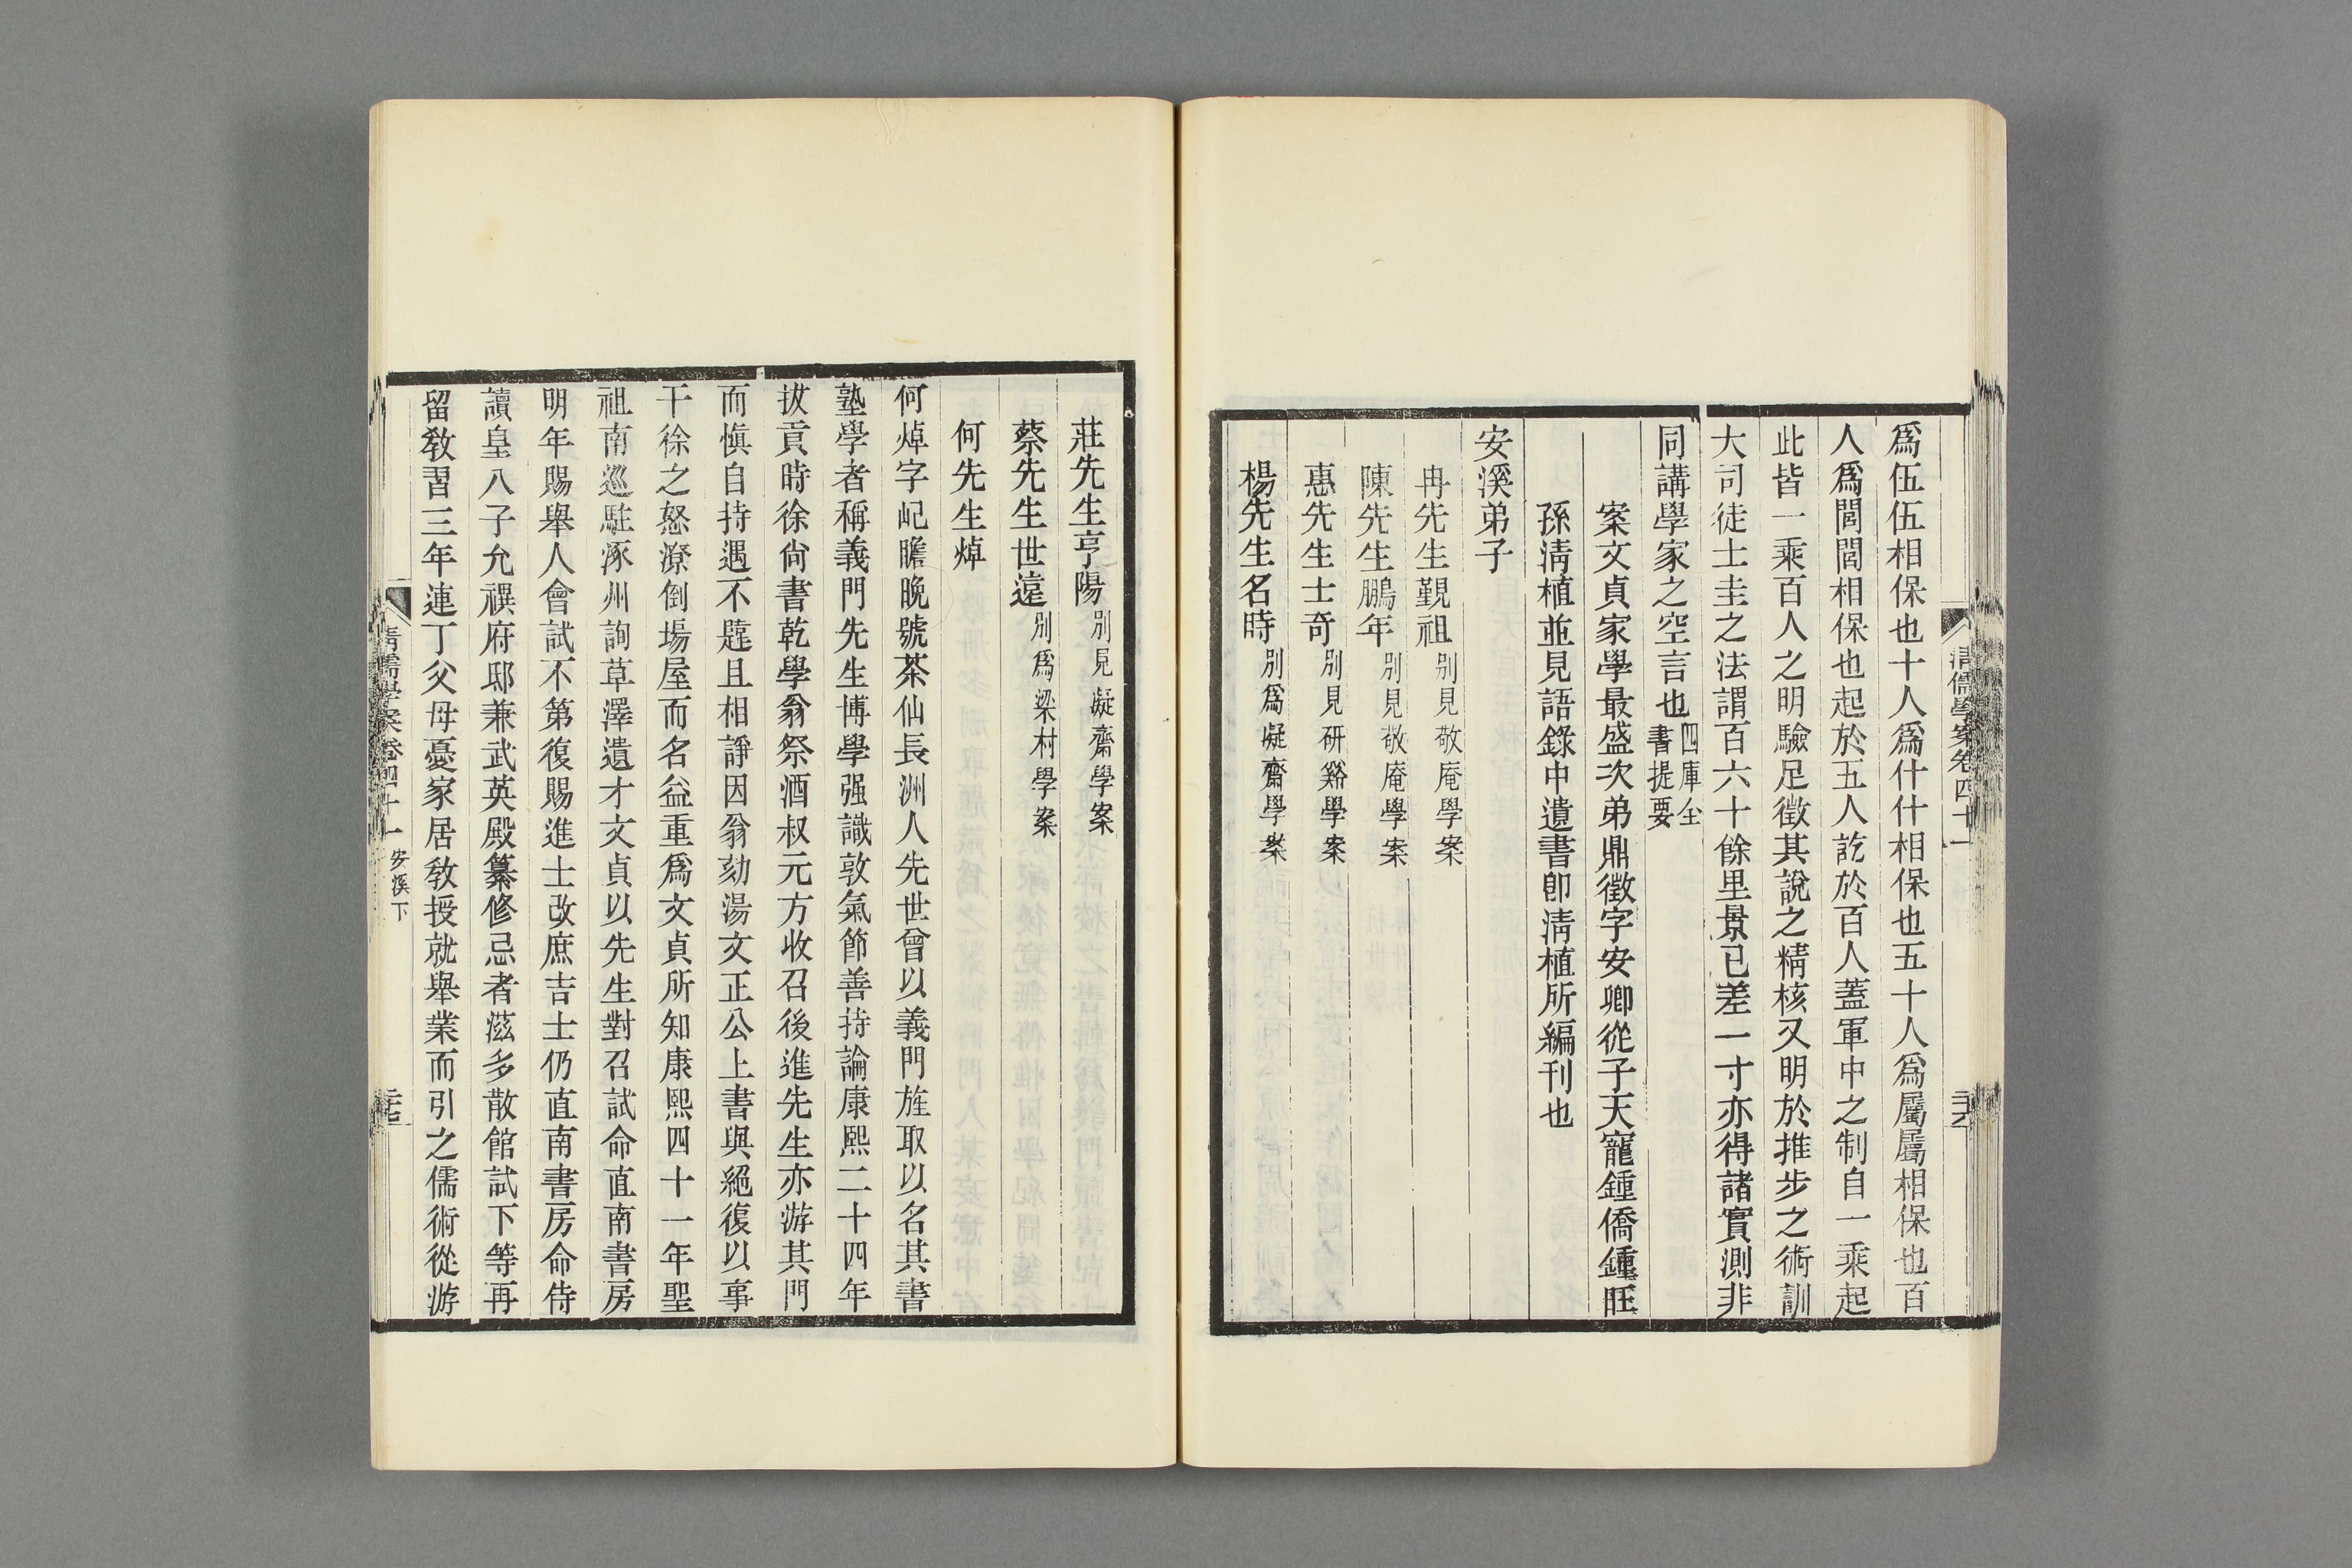 清儒學案卷四十一
爲伍伍相保也十人爲什什相保也五十人爲屬屬相保也百
人爲閭閭相保也起於五人訖於百人蓋軍中之制自一乘起
此皆一乘百人之明驗足徵其說之精核又明於推步之術訓
大司徒土圭之法謂百六十餘里景已差一寸亦得諸實測非
同講學家之空言也四庫全書提要
案文貞家學最盛次弟鼎徵字安卿從子天寵鍾僑鍾旺
孫淸植並見語錄中遺書卽淸植所編刊也
安溪弟子
冉先生覲祖別見敬庵學案
陳先生鵬年別見敬庵學案
惠先生士奇別見研谿學案
楊先生名時別爲凝齋學案
莊先生亨陽別見凝齋學案
蔡先生世遠別爲梁村學案
何先生焯
何焯字屺瞻晚號茶仙長洲人先世曾以義門旌取以名其書
塾學者稱義門先生博學强識敦氣節善持論康熙二十四年
拔貢時徐尙書乾學翁祭酒叔元方收召後進先生亦游其門
而愼自持遇不韙且相諍因翁劾湯文正公上書與絕復以事
干徐之怒潦倒場屋而名益重爲文貞所知康熙四十一年聖
祖南巡駐涿州詢草澤遺才文貞以先生對召試命直南書房
明年賜舉人會試不第復賜進士改庶吉士仍直南書房命侍
讀皇八子允禩府邸兼武英殿纂修忌者滋多散館試下等再
留敎習三年連丁父母憂家居敎授就舉業而引之儒術從游
清儒學案卷四十一 安溪下